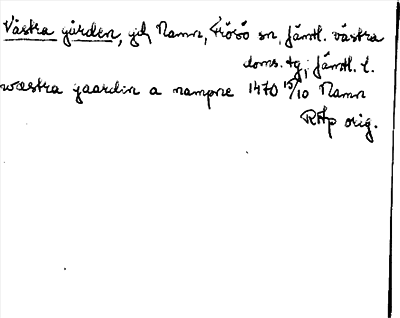 Västra gården, gd, Namn, Frösö sn, Jämtl. västra
doms. tg, Jämtl. l.
wæstra gaardin a nampne 1470 15/10 Namn
RAp orig.